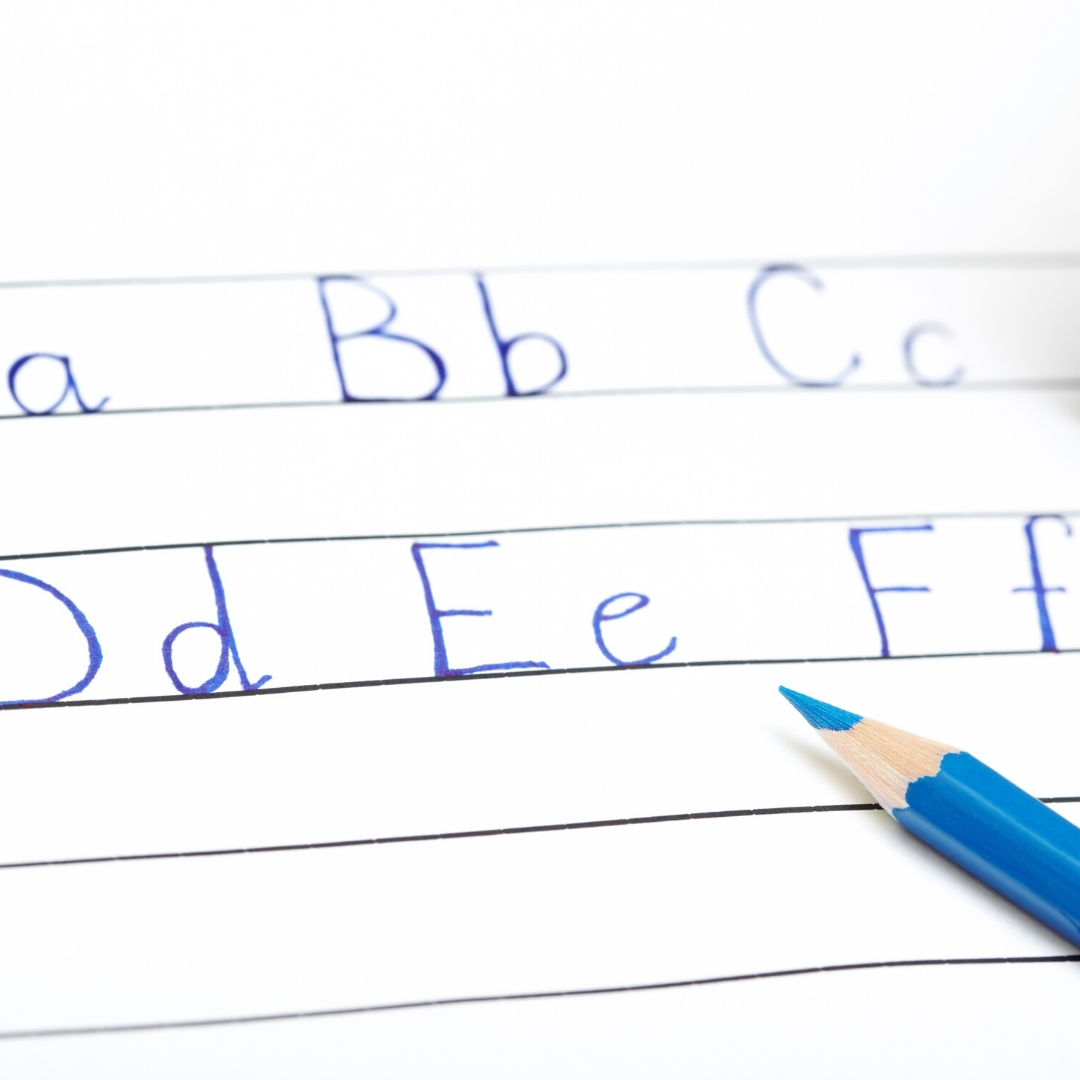 a Bb Cc
Dd Ee Ff